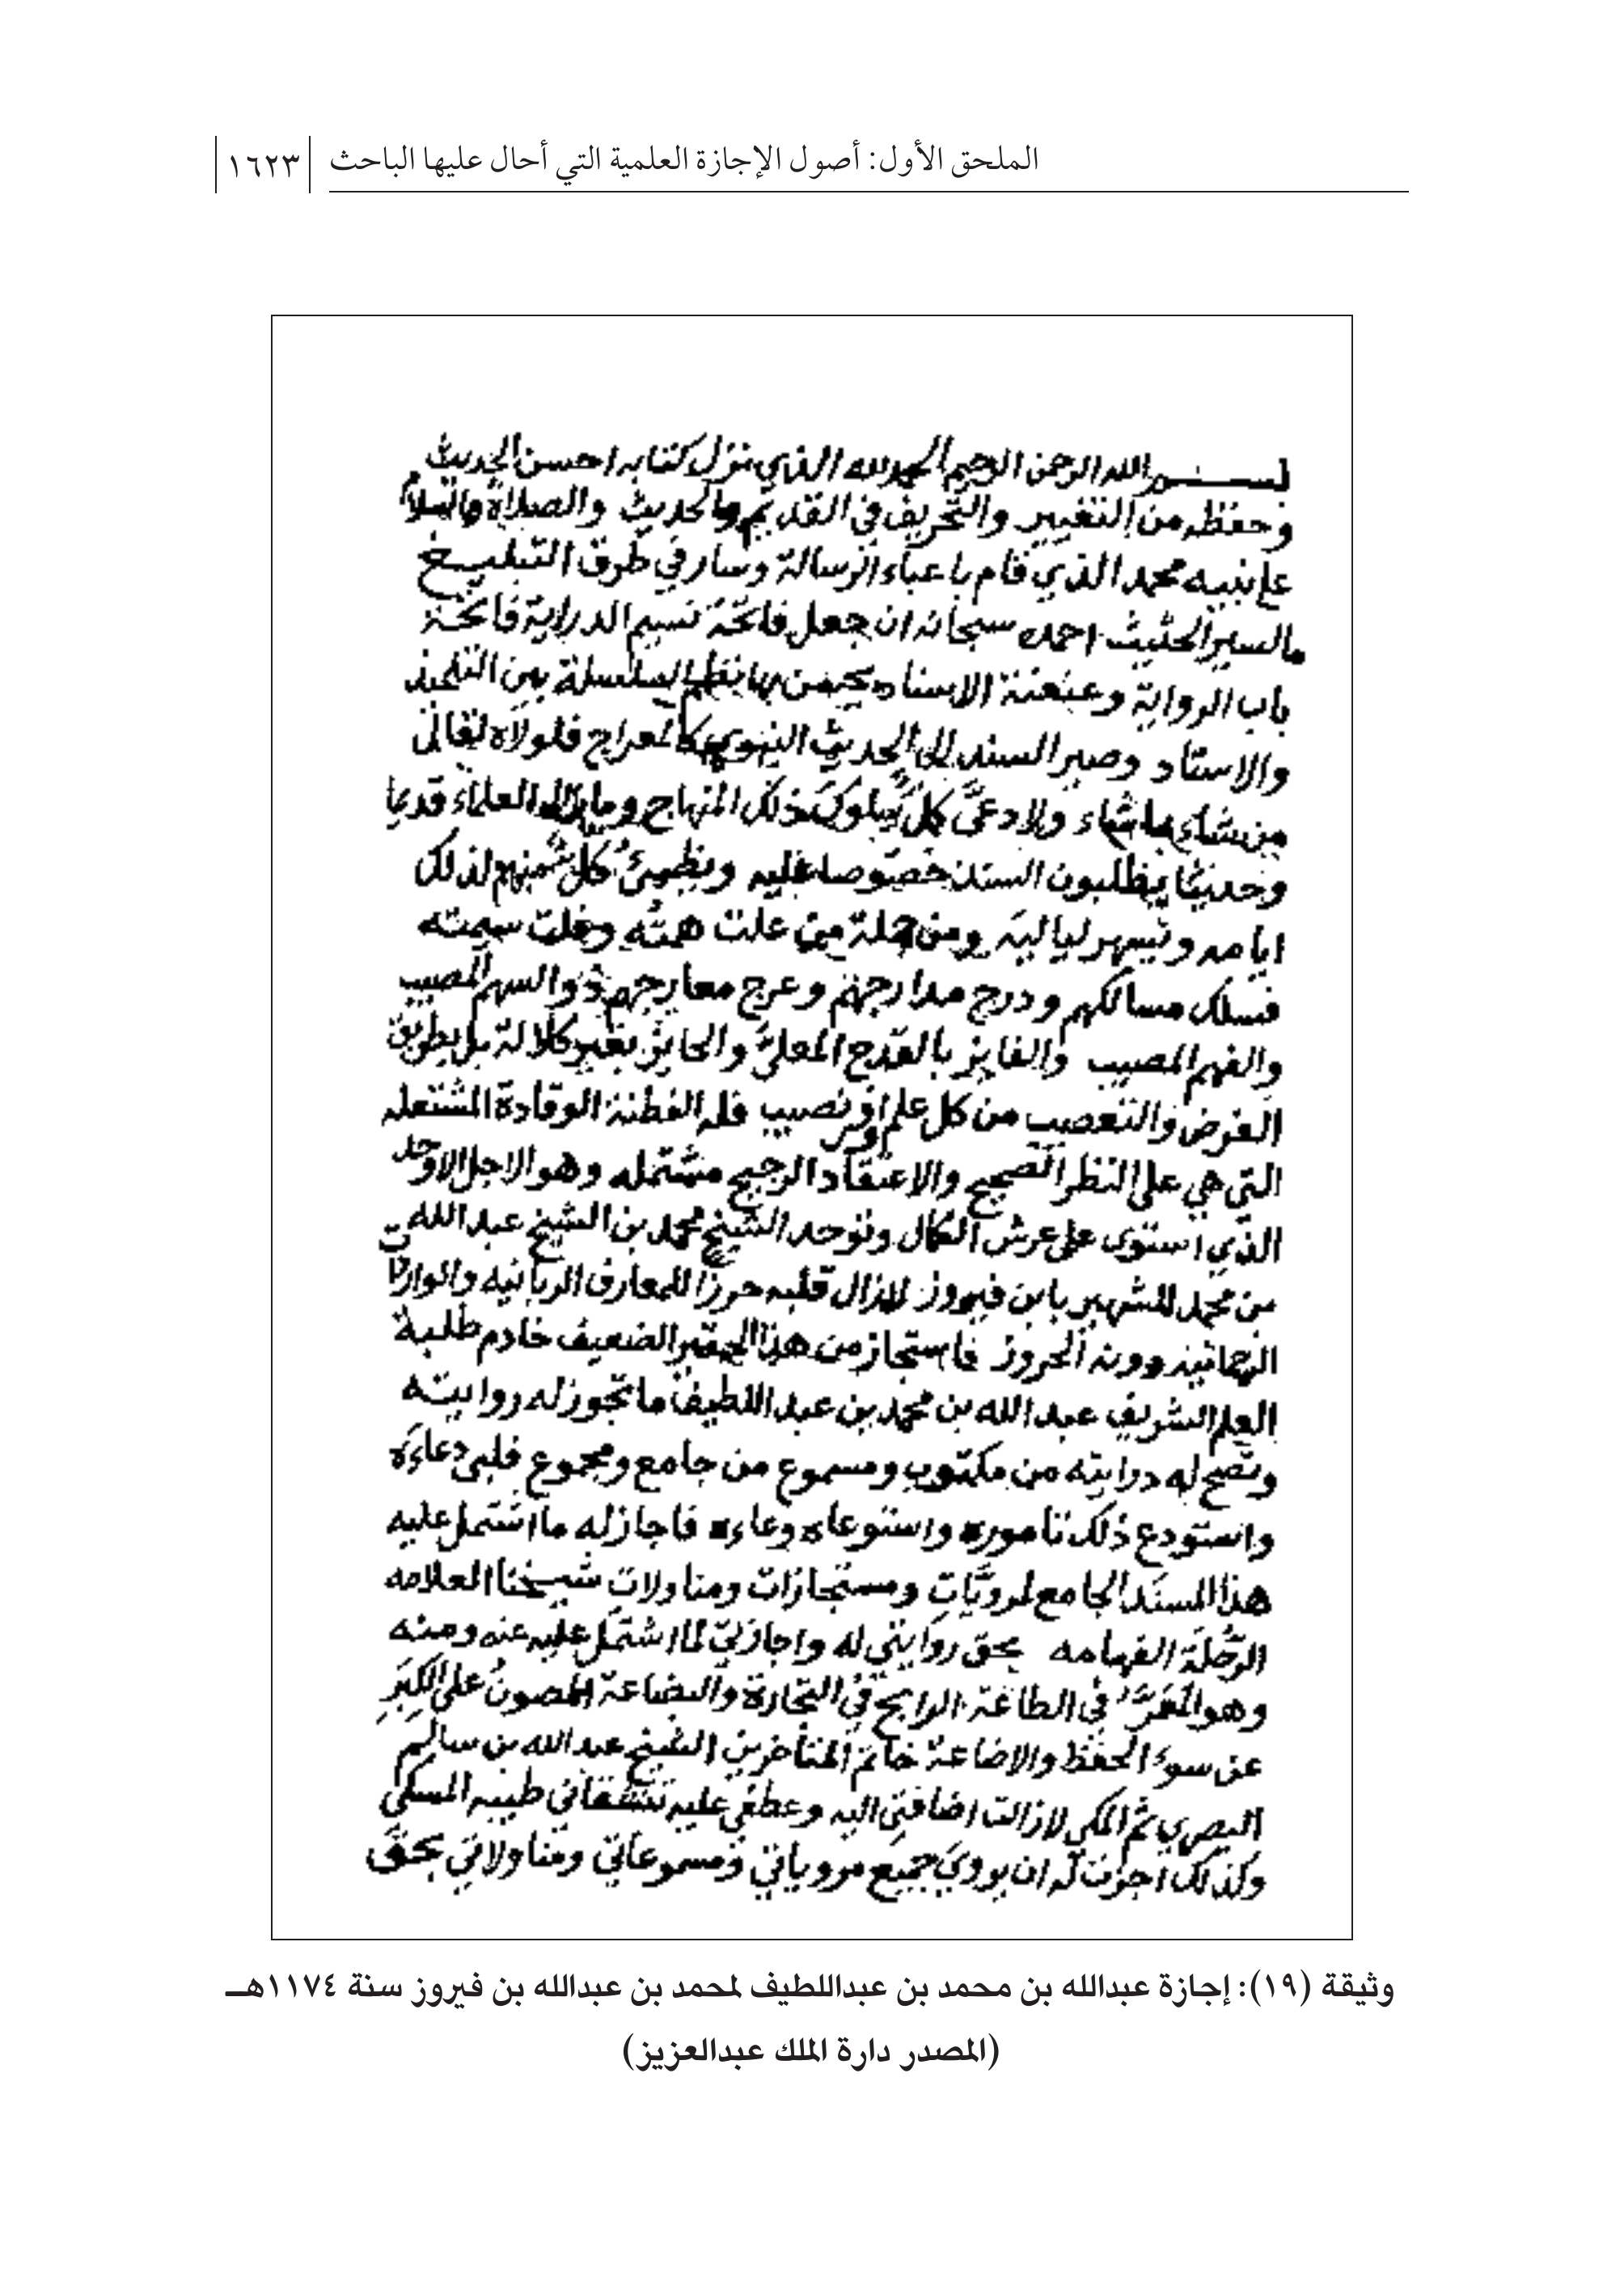 الملحق الأول: أصول الإجازة العلمية التي أحال عليها الباحث ١٦٢٣
بسم الله الرحمن الرحيم الحمد لله الذي نزل كتابه احسن الحديث
وحفظه من التغيير والتحريف في القديم والحديث والصلاة والسلام
على نبيه محمد الذي قام باعباء الرسالة وسار في طرق التبليغ
بالسير الحثيث احمده سبحانه ان جعل فاتحة نسيم الدراية فاتحة
باب الرواية وعنعنة الاسناد بها نظم السلسلة بين التلميذ
والاستاد وصير السند الى الحديث النبوي كالمعراج فلولاه لقال
من شاء ما شاء ولادعى كل سلوك ذلك المنهاج وما زال العلماء قديما
وحديثا يطلبون السند خصوصا عليه ويظمئ كل منهم لذلك
ايامه ويسهر لياليه ومن جملة من علت همته وغلت سيمته
فسلك مسالكهم ودرج مدارجهم وعرج معارجهم ذو السهم المصيب
والفهم المصيب والفايز بالقدح المعلى والحايز بغير كلالة بل بطريق
الفرض والتعصيب من كل علم اوفر نصيب فله الفطنة الوقادة المشتعله
التي هي على النظر الصحيح والاعتقاد الرجيح مشتمله وهو الاجل الاوحد
الذي استوى على عرش الكمال وتوحد الشيخ محمد بن الشيخ عبد الله
بن محمد الشهير بابن فيروز لازال قلبه حرزا للمعارف الربانيه
ودونه الحروز فاستجاز من هذا الحقير الضعيف خادم طلبة
العلم الشريف عبد الله بن محمد بن عبد اللطيف ما تجوز له روايته
وتصح له درايته من مكتوب ومسموع من جامع ومجموع فلبى دعاءه
واستودع ذلك تاموره واستوعاه وعاءه فاجاز له ما اشتمل عليه
هذا المسند الجامع لمرويات ومستجازات ومناولات شيخنا العلامه
الرحلة الفهامه بحق روايتي له واجازتي لما اشتمل عليه عنه ومنه
وهو في الطاعة الرابح في التجارة والبضاعة المصون على الكبر
عن سوء الحفظ والاضاعة خاتم المتأخرين الشيخ عبد الله بن سالم
البصري ثم المكي لازالت اضافتي اليه وعطفي عليه طيبه المسكي
وكذلك اجزت له ان يروي جميع مروياتي ومسموعاتي ومناولاتي بحق
وثيقة (١٩): إجازة عبدالله بن محمد بن عبداللطيف لمحمد بن عبدالله بن فيروز سنة ١١٧٤هـ
(المصدر دارة الملك عبدالعزيز)